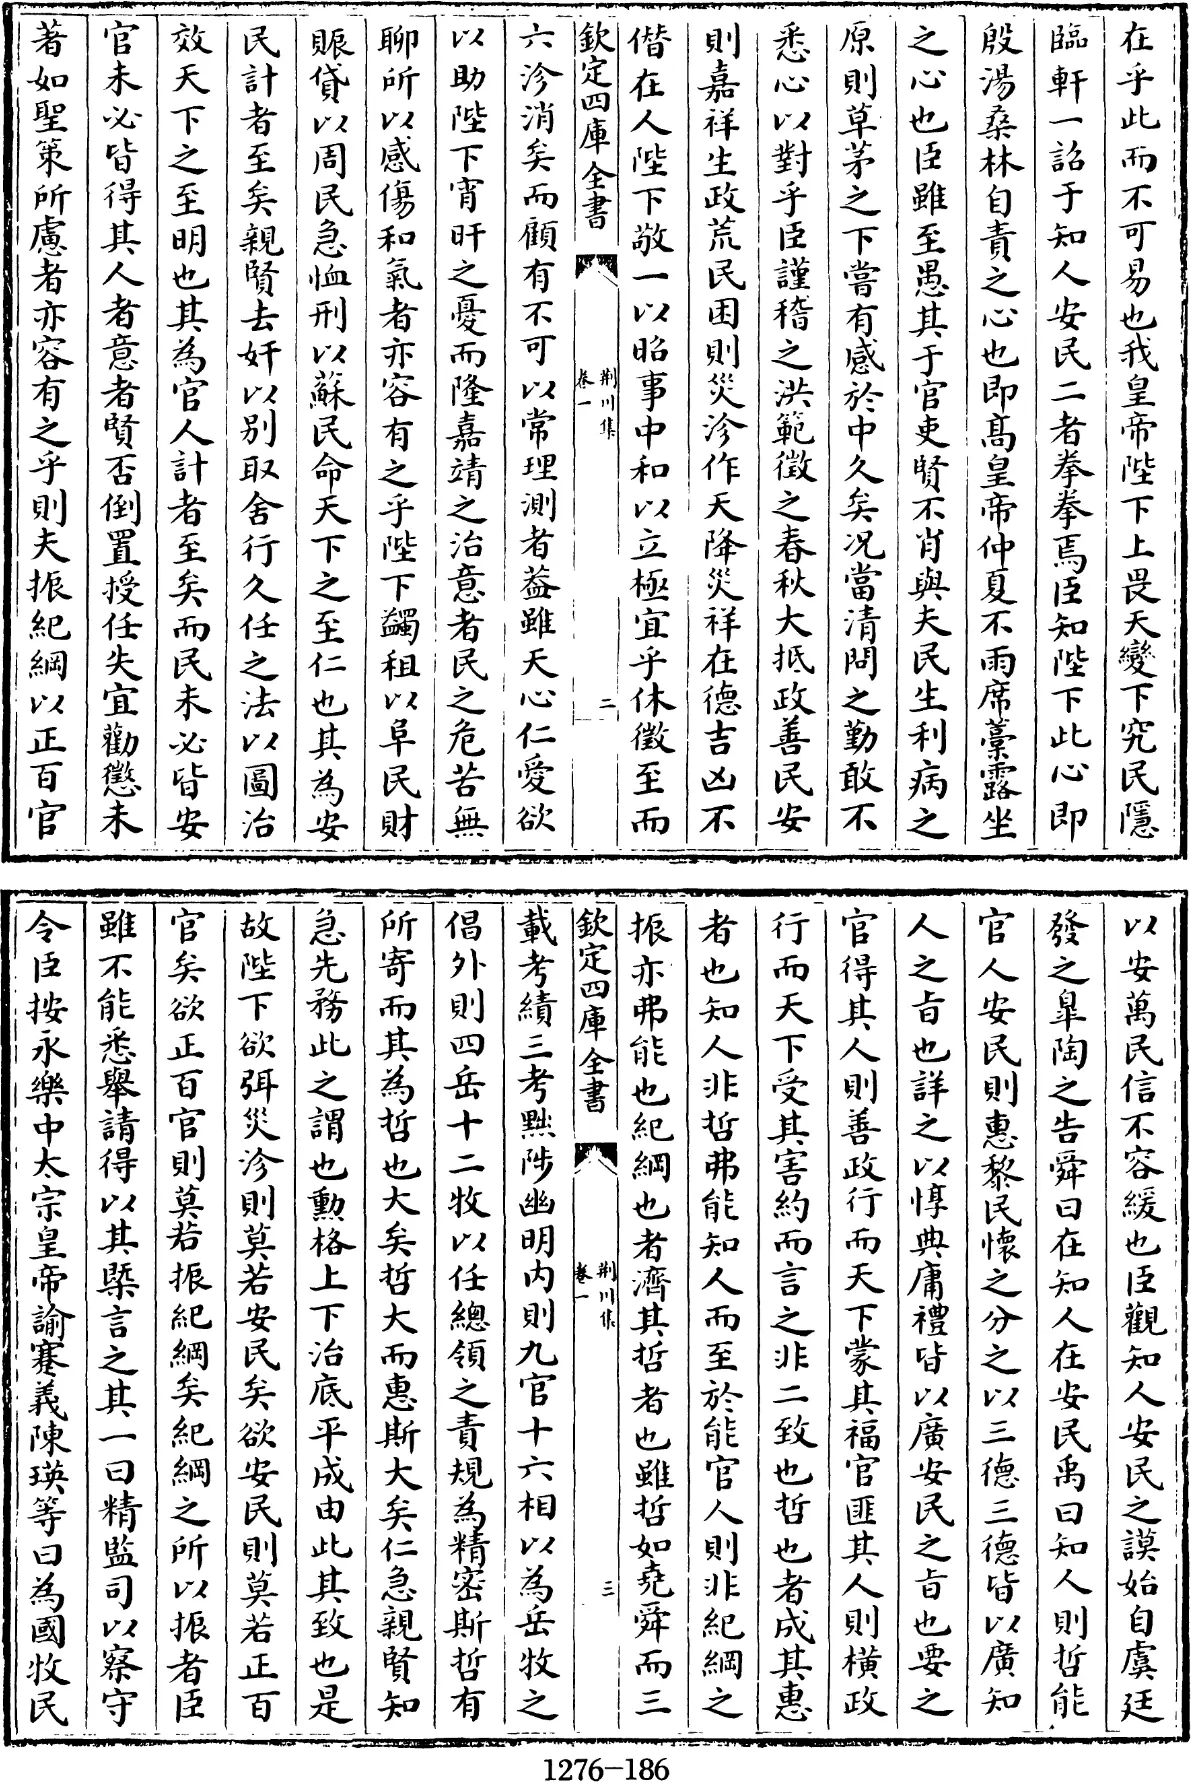 在乎此而不可易也我皇帝陛下上畏天變下究民隱
臨軒一詔于知人安民二者拳拳焉臣知陛下此心即
殷湯桑林自責之心也即髙皇帝仲夏不雨席藁露坐
之心也臣雖至愚其于官吏賢不肖與夫民生利病之
原則草茅之下嘗有感於中久矣况當清問之勤敢不
悉心以對乎臣謹稽之洪範徵之春秋大抵政善民安
則嘉祥生政荒民困則災沴作天降災祥在德吉凶不
僭在人陛下敬一以昭事中和以立極宜乎休徵至而
欽定四庫全書
荆川集
卷一
二
六沴消矣而顧有不可以常理測者葢雖天心仁愛欲
以助陛下宵旰之憂而隆嘉靖之治意者民之危苦無
聊所以感傷和氣者亦容有之乎陛下蠲租以阜民財
賑貸以周民急恤刑以蘇民命天下之至仁也其為安
民計者至矣親賢去奸以别取舍行久任之法以圖治
效天下之至明也其為官人計者至矣而民未必皆安
官未必皆得其人者意者賢否倒置授任失宜勸懲未
著如聖策所慮者亦容有之乎則夫振紀綱以正百官
以安萬民信不容緩也臣觀知人安民之謨始自虞廷
發之臯陶之告舜曰在知人在安民禹曰知人則哲能
官人安民則惠黎民懷之分之以三德三德皆以廣知
人之㫖也詳之以惇典庸禮皆以廣安民之㫖也要之
官得其人則善政行而天下蒙其福官匪其人則橫政
行而天下受其害約而言之非二致也哲也者成其惠
者也知人非哲弗能知人而至於能官人則非紀綱之
振亦弗能也紀綱也者濟其哲者也雖哲如堯舜而三
欽定四庫全書
荆川集
卷一
三
載考績三考黜陟幽明内則九官十六相以為岳牧之
倡外則四岳十二牧以任總領之責規為精密斯哲有
所寄而其為哲也大矣哲大而惠斯大矣仁急親賢知
急先務此之謂也勲格上下治底平成由此其致也是
故陛下欲弭災沴則莫若安民矣欲安民則莫若正百
官矣欲正百官則莫若振紀綱矣紀綱之所以振者臣
雖不能悉舉請得以其槩言之其一曰精監司以察守
令臣按永樂中太宗皇帝諭蹇義陳瑛等曰為國牧民
1276-186